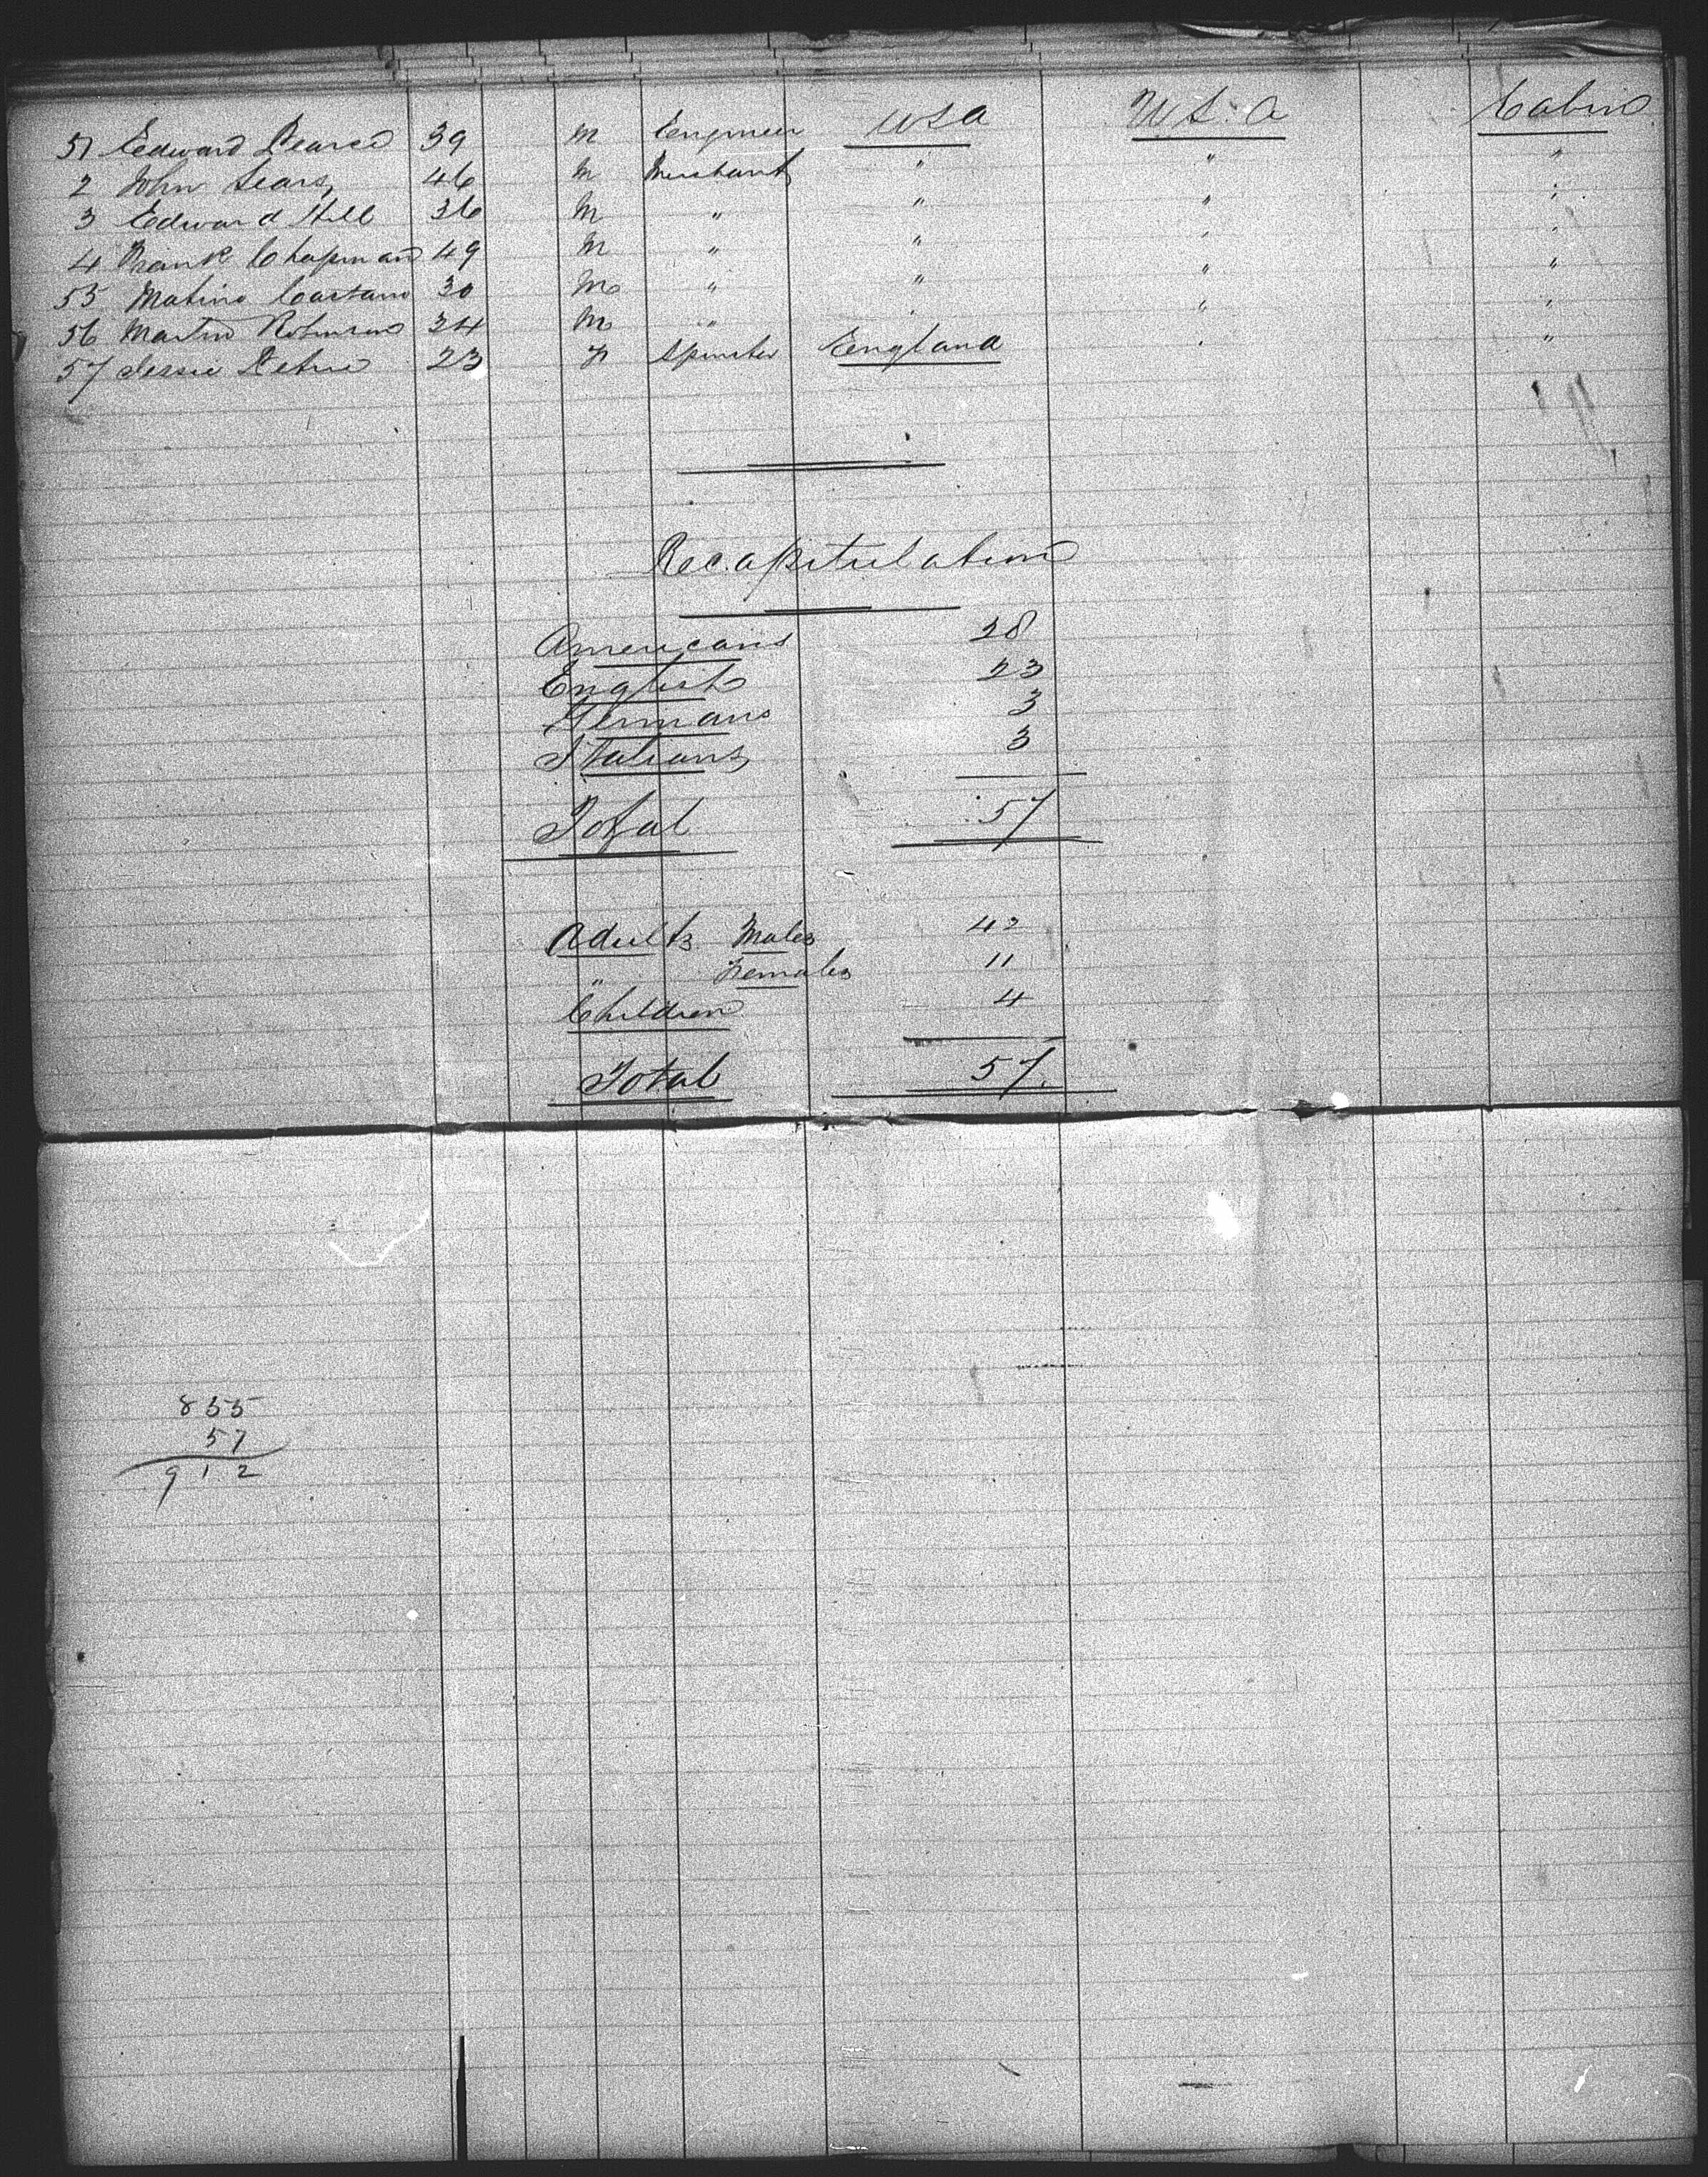 51 Edward Pearce 39 M Engineer USA U.S.A Cabin
2 John Sears 46 M Merchant " " "
3 Edward Hill 36 M " " " "
4 Frank Chapman 49 M " " " "
55 Castano 30 M " " " "
56 Martin Robinson 24 M " " " "
57 Jessie Petrie 23 F Spinster England " "
Recapitulation
Americans 28
English 23
Germans 3
Italians 3
Total 57
Adults Males 42
" Females 11
Children 4
Total 57.
855
57
912